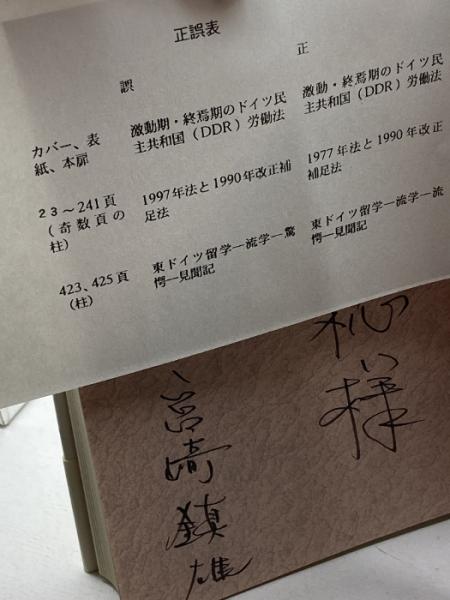 正誤表
誤
正
カバー、表
紙、本扉
激動期・終焉期のドイツ民
主共和国(DDR)労働法
激動・終焉期のドイツ民
主共和国(DDR)労働法
23~241頁
(奇数頁の
柱)
1997年法と1990年改正補
足法
1977年法と1990年改正
補足法
423、425頁
(柱)
東ドイツ留学―流学―驚
愕―見聞記
東ドイツ留学―流学―流
愕―見聞記
様
宮崎鎮雄